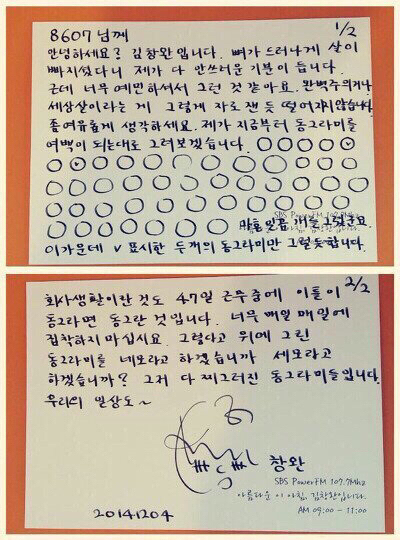 8607님께
1/2
안녕하세요? 김창완입니다. 뼈가 드러나게 살이
빠지셨다니 제가 다 안쓰러운 기분이 듭니다.
근데 너무 예민하셔서 그런 것 같아요. 완벽주의거나
세상살이라는 게 그렇게 자로 잰 듯 떨어지지 않습니다.
좀 여유롭게 생각하세요. 제가 지금부터 동그라미를
여백이 되는대로 그려보겠습니다.
마흔일곱 개를 그렸군요.
SBS PowerFM 107.7Mhz
이 가운데 v 표시한 두 개의 동그라미만 그럴듯합니다.
2/2
회사생활이란 것도 47일 근무 중에 이틀이
동그라면 동그란 것입니다. 너무 매일 매일에
집착하지 마십시요. 그렇다고 위에 그린
동그라미를 네모라고 하겠습니까 세모라고
하겠습니까? 그저 다 찌그러진 동그라미들입니다.
우리의 일상도~
창완
SBS PowerFM 107.7Mhz
아름다운 이 아침, 김창완입니다.
AM 09:00 - 11:00
20141204